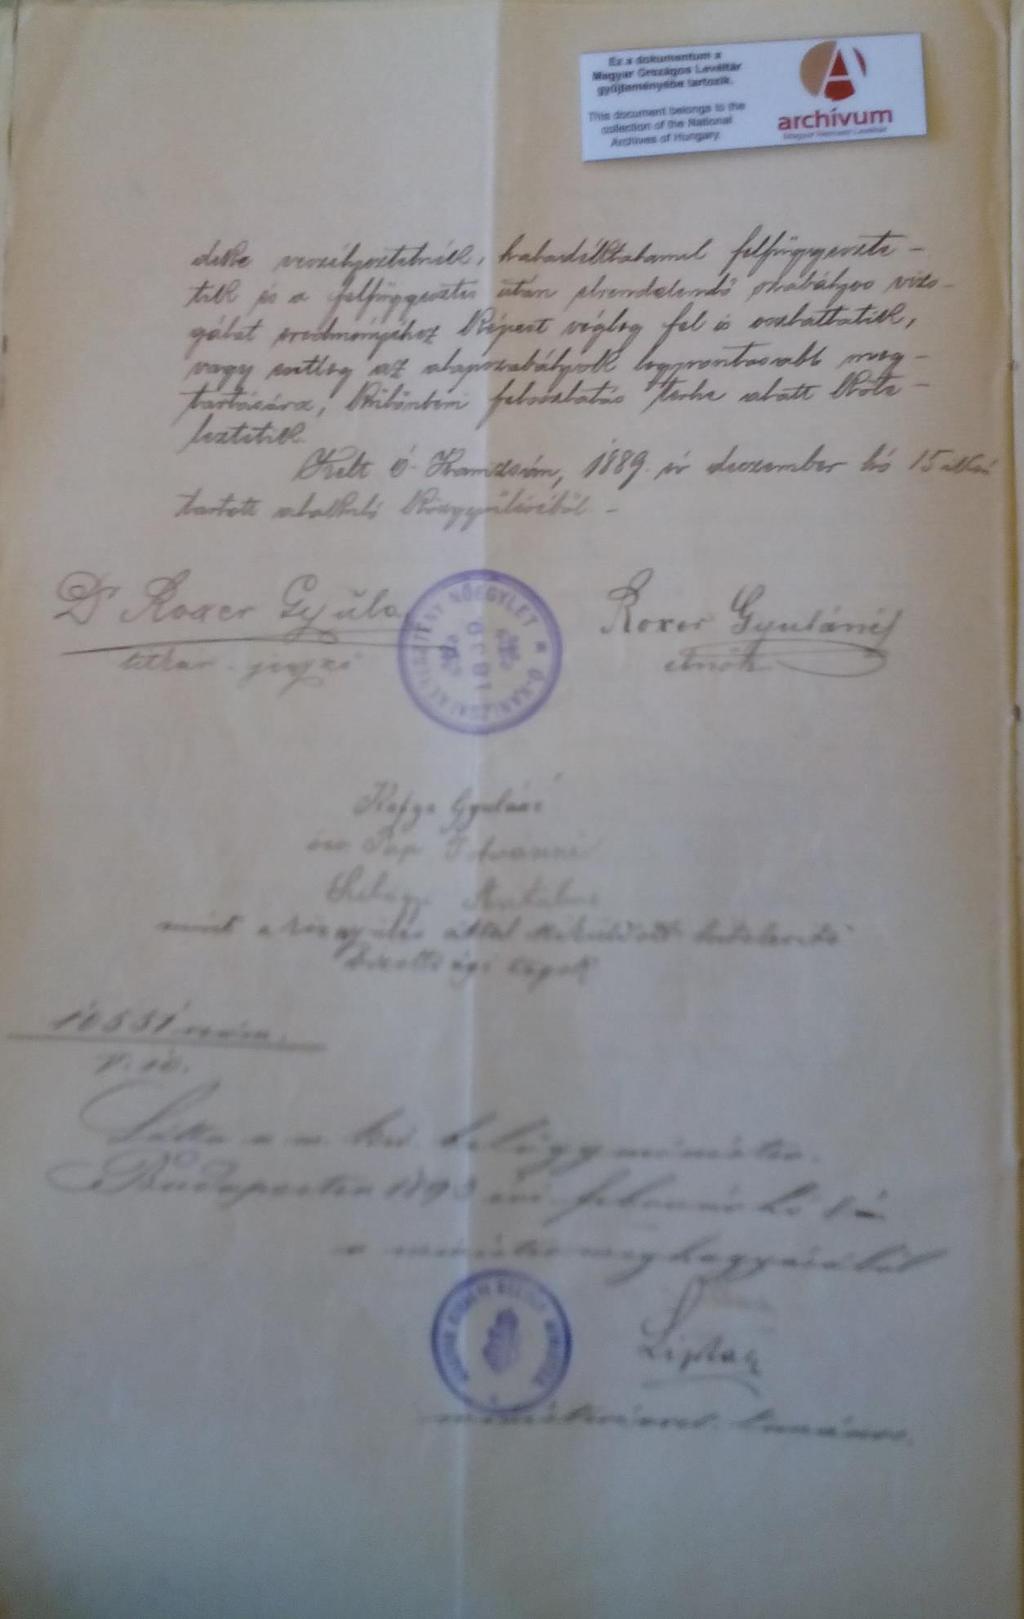 Ez a dokumentum a
Magyar Országos Levéltár
gyűjteményébe tartozik.
This document belongs to the
collection of the National
Archives of Hungary.
archívum
Magyar Nemzeti Levéltár
deke veszélyeztetnék, haladéktalanul felfüggeszte-
tik és a felfüggesztés után elrendelendő szabályos vizs-
gálat eredményéhez képest végleg fel is oszlattatik,
vagy esetleg az alapszabályok legpontosabb meg-
tartására, különbeni feloszlatás terhe alatt köte-
leztetik.
Kelt Ó-Kanizsán, 1889. év deczember hó 15
tartott alakuló közgyűléséből -
Dr Roxer Gyula
titkár-jegyző
Roxer Gyuláné
elnök
NŐEGYLET
Gyuláné
özv Pap Istvánné
mint a közgyűlés által kiküldött hitelesítő
bizottsági tagok
10531 szám.
Látta a m. kir. belügyminister.
Budapesten 1890 évi február hó 8-án
a minister meghagyásából
ministeri tanácsos.